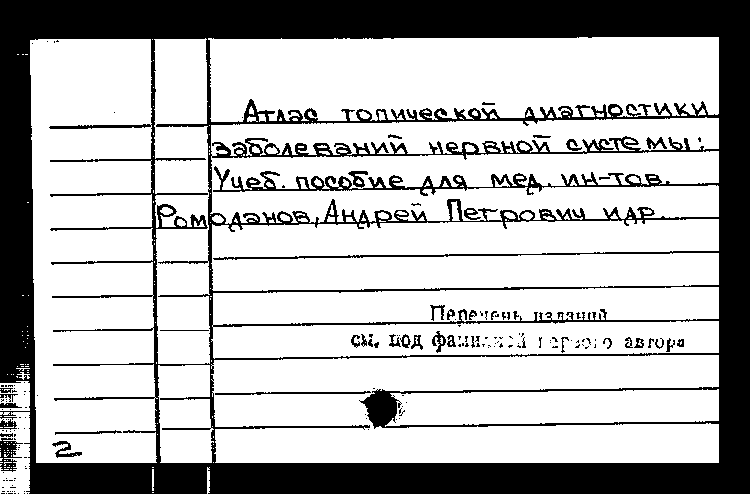 Атлас топической диагностики
заболеваний нервной системы:
Учеб. пособие для мед. ин-тов.
Ромоданов, Андрей Петрович и др.
Перечень изданий
см. под фамилией первого автора
2